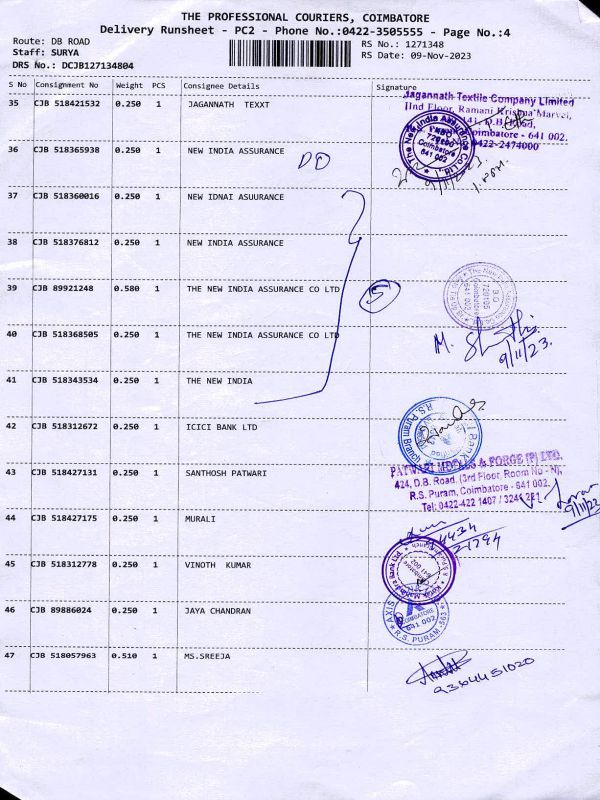 THE PROFESSIONAL COURIERS, COIMBATORE
Delivery Runsheet - PC2 - Phone No.:0422-3505555 - Page No.:4
Route: DB ROAD
Staff: SURYA
DRS No.: DCJB127134804
RS No.: 1271348
RS Date: 09-Nov-2023
S No Consignment No Weight PCS Consignee Details Signature
35 CJB 518421532 0.250 1 JAGANNATH TEXXT
Jagannath Textile Company Limited
IInd Floor, Ramani Krishna Marvel,
D.B. Road,
Coimbatore - 641 002.
0422-2474000
The New India Assurance Co. Ltd.
Coimbatore
641 002
36 CJB 518365938 0.250 1 NEW INDIA ASSURANCE
DO
37 CJB 518360016 0.250 1 NEW IDNAI ASUURANCE
38 CJB 518376812 0.250 1 NEW INDIA ASSURANCE
39 CJB 89921248 0.580 1 THE NEW INDIA ASSURANCE CO LTD
5
40 CJB 518368505 0.250 1 THE NEW INDIA ASSURANCE CO LTD
9/11/23.
41 CJB 518343534 0.250 1 THE NEW INDIA
42 CJB 518312672 0.250 1 ICICI BANK LTD
R.S. Puram Branch
43 CJB 518427131 0.250 1 SANTHOSH PATWARI
424, D.B. Road, (3rd Floor, Room No - N),
R.S. Puram, Coimbatore - 641 002.
Tel: 0422-422 1407 / 3241 221
9/11/23
44 CJB 518427175 0.250 1 MURALI
45 CJB 518312778 0.250 1 VINOTH KUMAR
Kotak Mahindra Bank Ltd.
46 CJB 89886024 0.250 1 JAYA CHANDRAN
AXIS
COIMBATORE
641 002
R.S. PURAM-563
47 CJB 518057963 0.510 1 MS.SREEJA
9364451020